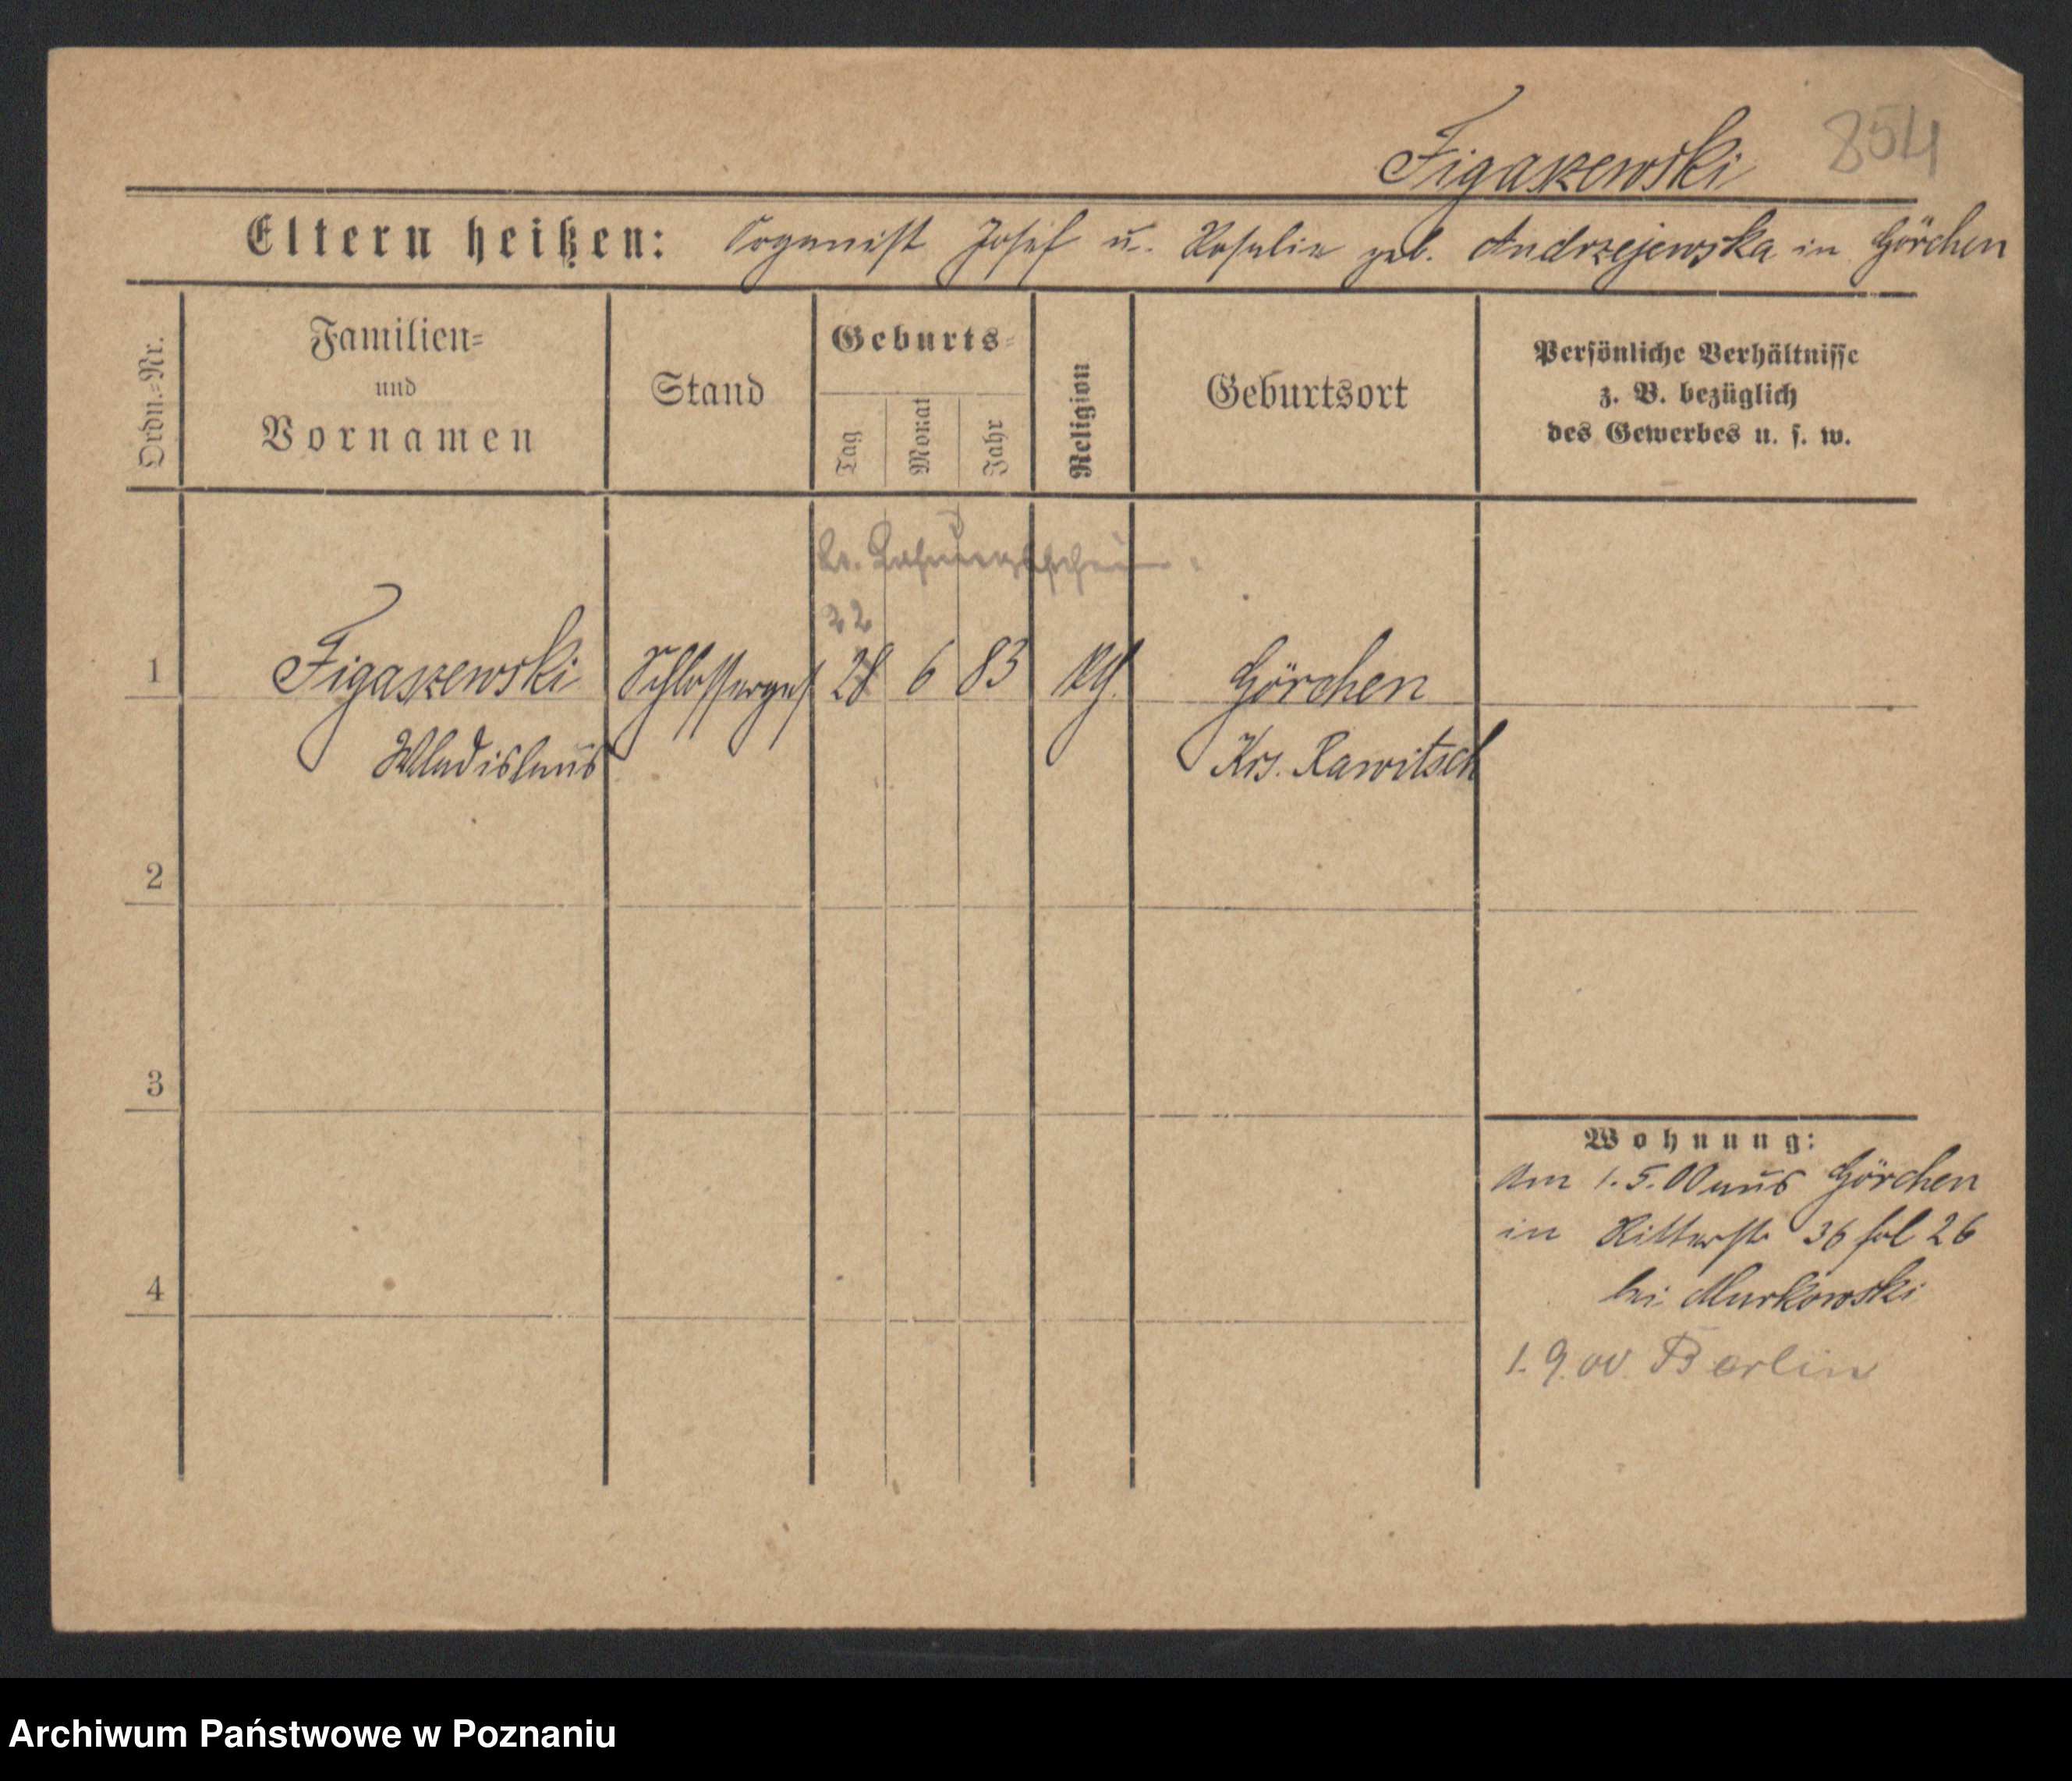 Figaszewski 854
Eltern heißen: Organist Josef u. Rosalie geb. Andrzejewska in Görchen
Ordn.-Nr.
Familien-
und
Vornamen
Stand
Geburts-
Tag
Monat
Jahr
Religion
Geburtsort
Persönliche Verhältnisse
z. B. bezüglich
des Gewerbes u. s. w.
lt. Losungsschein.
22
1 Figaszewski Schlosserges 28 6 83 kth. Görchen
Wladislaus Krs. Rawitsch
2
3
Wohnung:
Am 1.5.00 aus Görchen
in Ritterstr 36 fol 26
4
bei Murkowski
1.9.00. Berlin
Archiwum Państwowe w Poznaniu